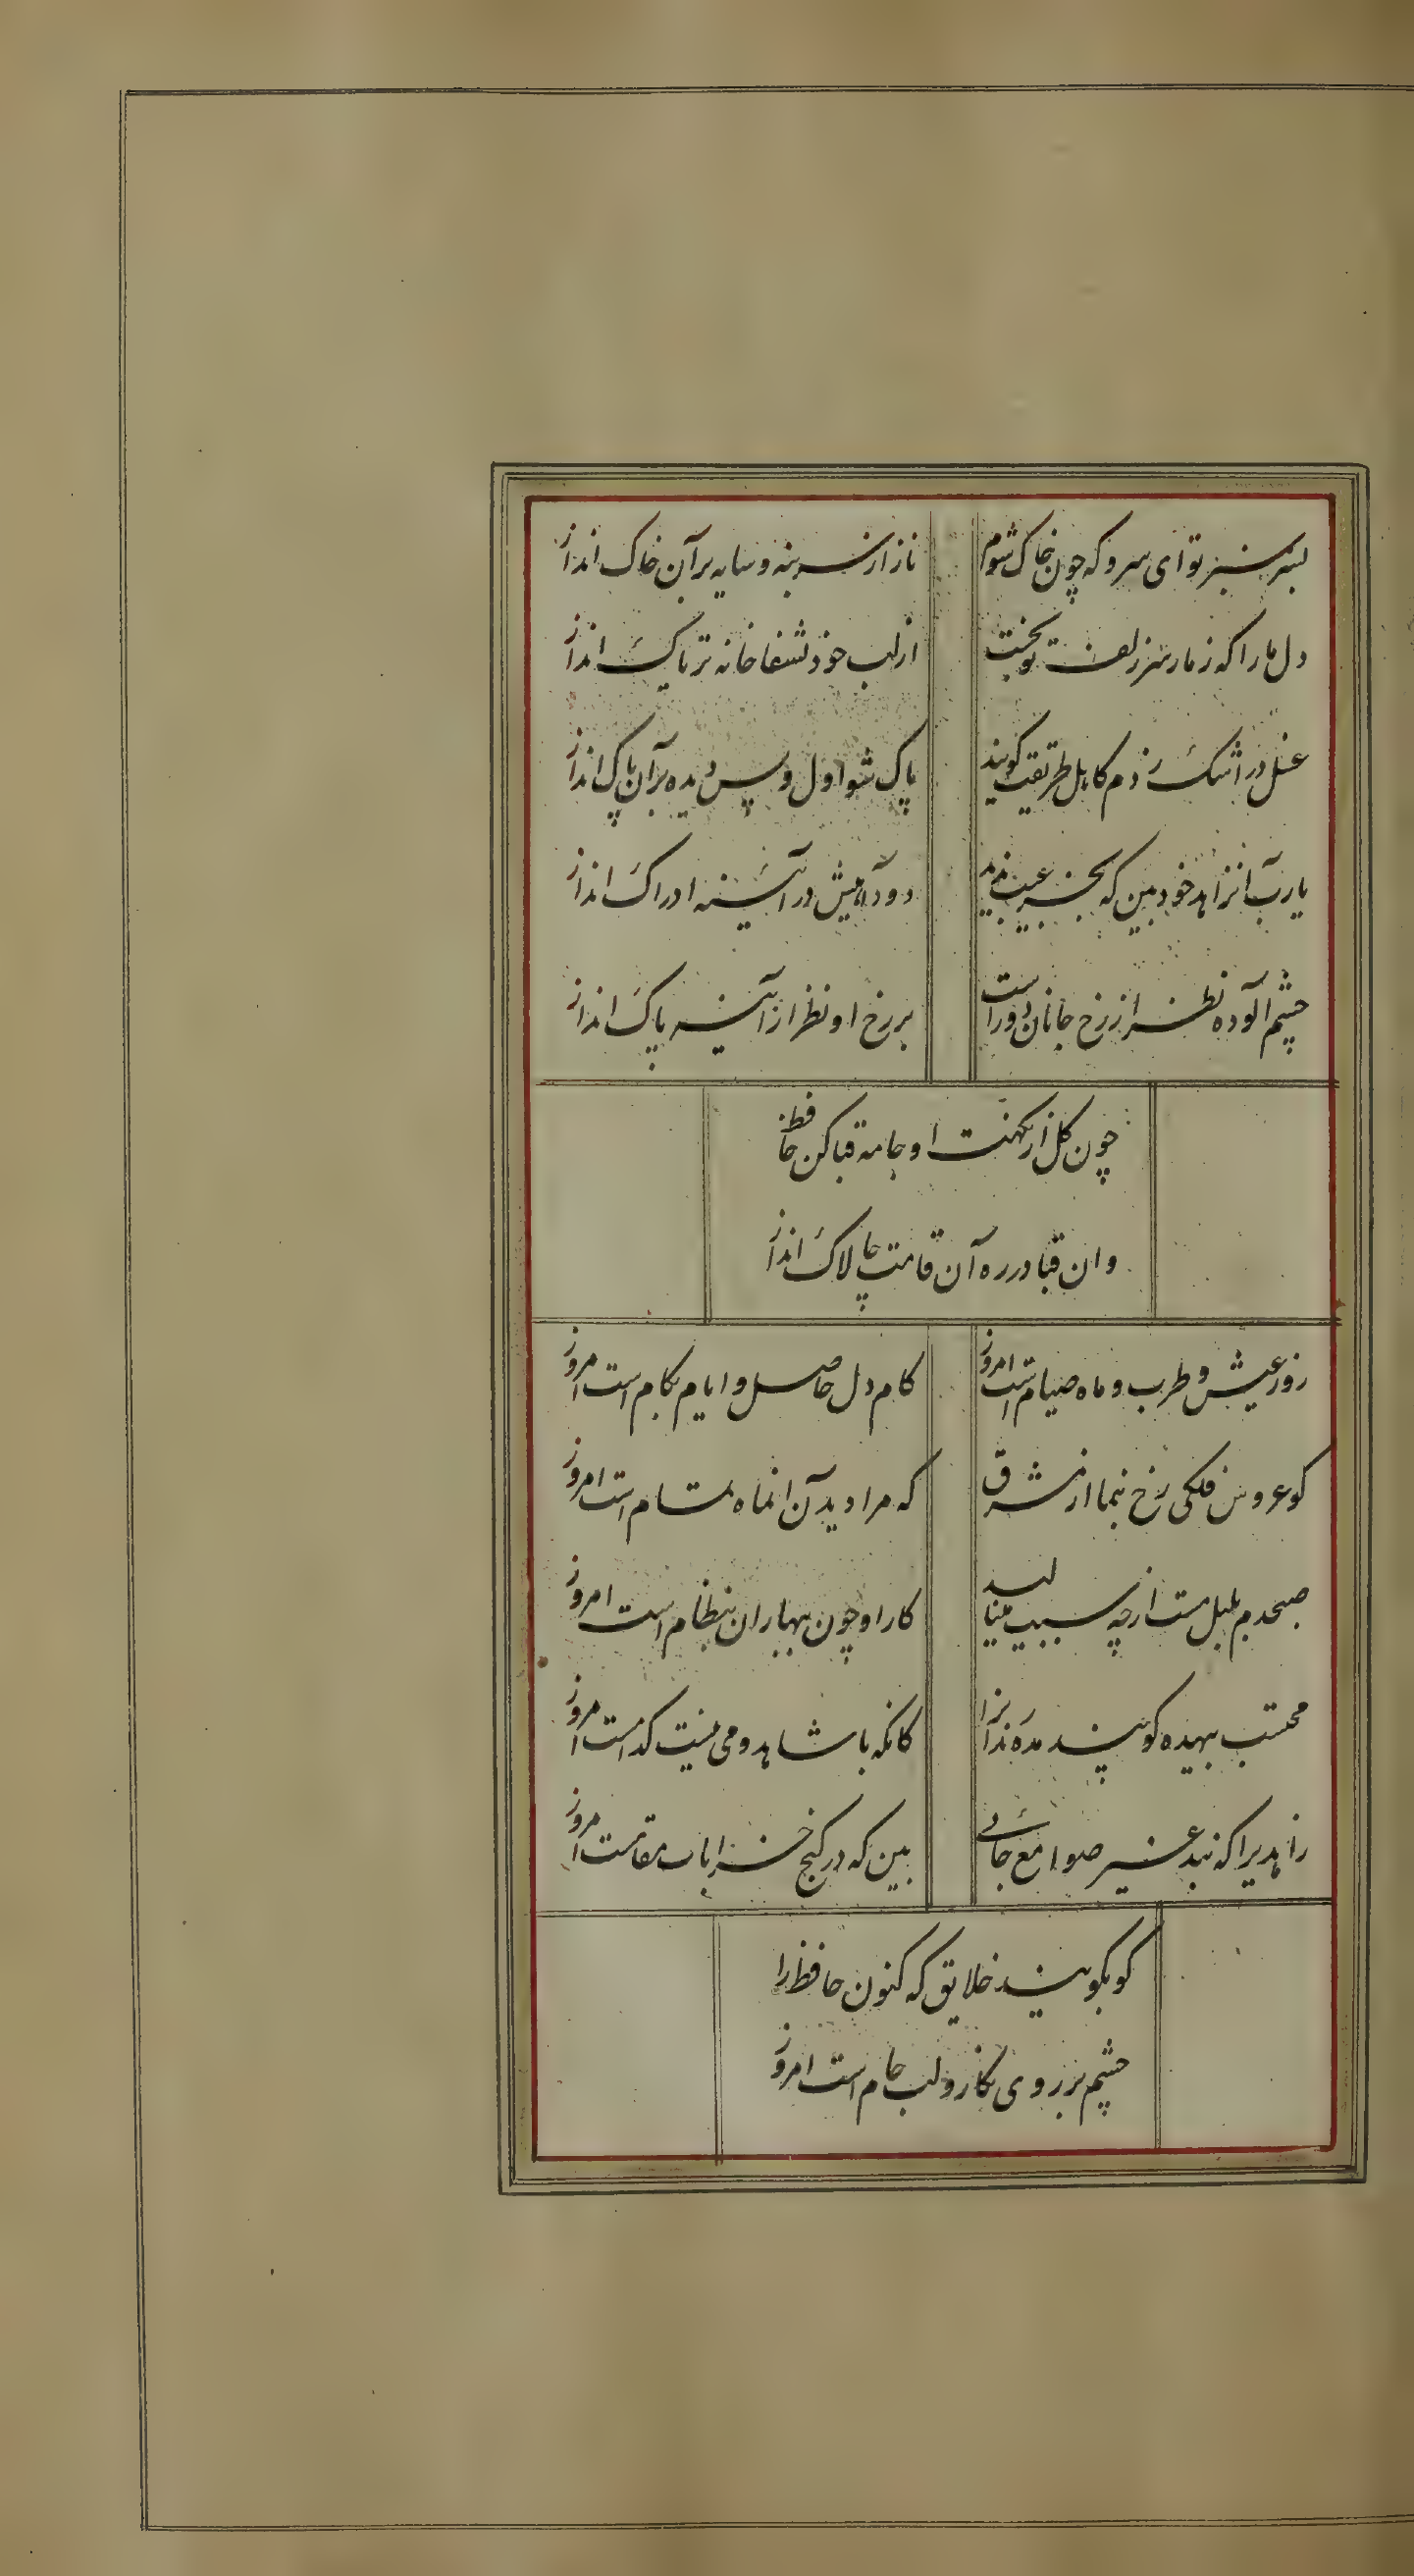 بسر سبز تو ای سرو که چون خاک شوم
ناز از سر بنه و سایه بر آن خاک انداز
دل ما را که ز مار سر زلف تو بخست
از لب خود بشفاخانه تریاک انداز
غسل در اشک زدم کاهل طریقت گویند
پاک شو اول و پس دیده بر آن پاک انداز
یا رب آن زاهد خودبین که بجز عیب ندید
دود آهیش در آئینه ادراک انداز
چشم آلوده نظر از رخ جانان دور است
بر رخ او نظر از آینه پاک انداز
چون کل از نکهت او جامه قبا کن حافظ
وان قبا در ره آن قامت چالاک انداز
روز عیش و طرب و ماه صیام است امروز
کام دل حاصل و ایام بکام است امروز
کو عروس فلکی رخ بنما از مشرق
که مرا دیدن آن ماه تمام است امروز
صبحدم بلبل مست از چه سبب مینالید
کار او چون بهاران بنظام است امروز
محتسب بیهده کو پند مده رندانرا
کانکه با شاهد و می نیست کدامست امروز
زاهدیرا که نبد غیر صوامع جائی
بین که در کنج خرابات مقامست امروز
کو بکویند خلایق که کنون حافظ را
چشم بر روی نکار و لب جام است امروز